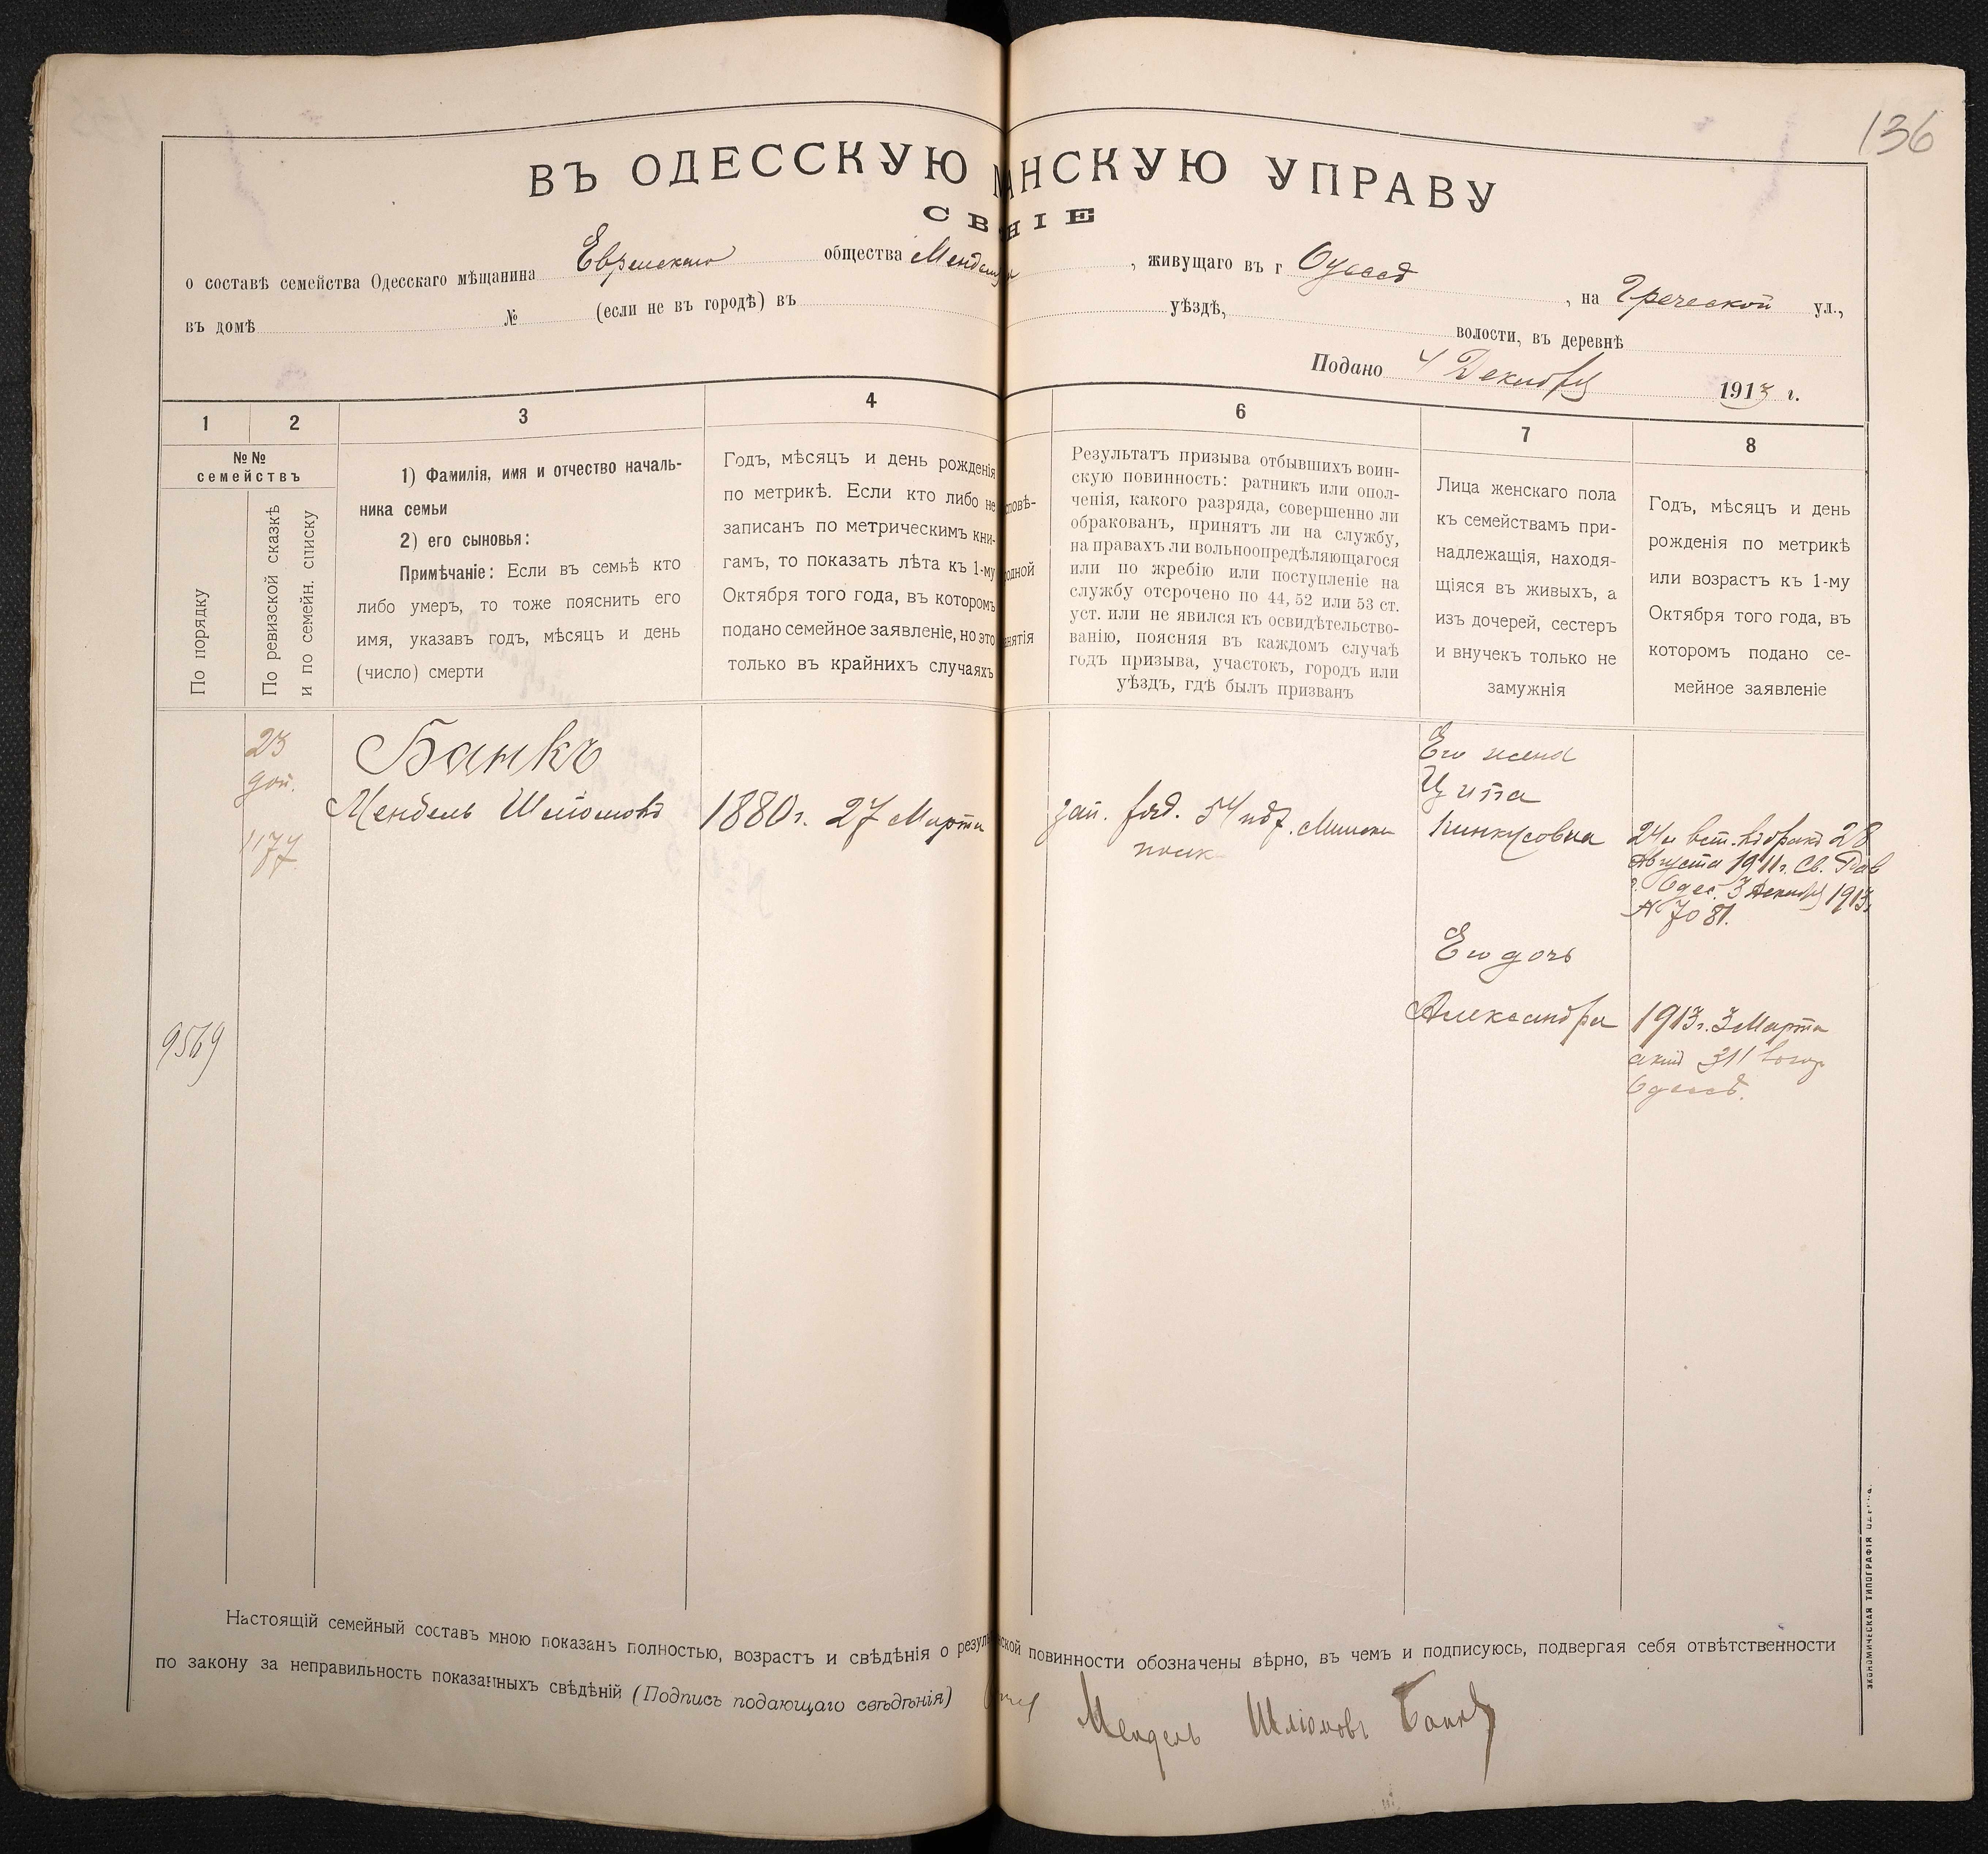 136
ВЪ ОДЕССКУЮ НСКУЮ УПРАВУ
СВ НІЕ
о составѣ семейства Одесскаго мѣщанина Еврейскаго общества Менделя, живущаго въ г Одессѣ, на Греческой ул.,
въ домѣ № (если не въ городѣ) въ уѣздѣ, волости, въ деревнѣ
Подано 4 Декабря 1913 г.
1
2
3
4
6
7
8
№№
семействъ
По порядку
По ревизской сказкѣ
и по семейн. списку
1) Фамилія, имя и отчество началь-
ника семьи
2) его сыновья:
Примѣчаніе: Если въ семьѣ кто
либо умеръ, то тоже пояснить его
имя, указавъ годъ, мѣсяцъ и день
(число) смерти
Годъ, мѣсяцъ и день рожденія
по метрикѣ. Если кто либо не
записанъ по метрическимъ кни-
гамъ, то показать лѣта къ 1-му
Октября того года, въ которомъ
подано семейное заявленіе, но это
только въ крайнихъ случаяхъ
повѣ-
одной
нятія
Результатъ призыва отбывшихъ воин-
скую повинность: ратникъ или опол-
ченія, какого разряда, совершенно ли
обракованъ, принятъ ли на службу,
на правахъ ли вольноопредѣляющагося
или по жребію или поступленіе на
службу отсрочено по 44, 52 или 53 ст.
уст. или не явился къ освидѣтельство-
ванію, поясняя въ каждомъ случаѣ
годъ призыва, участокъ, городъ или
уѣздъ, гдѣ былъ призванъ
Лица женскаго пола
къ семействамъ при-
надлежащія, находя-
щіяся въ живыхъ, а
изъ дочерей, сестеръ
и внучекъ только не
замужнія
Годъ, мѣсяцъ и день
рожденія по метрикѣ
или возрастъ къ 1-му
Октября того года, въ
которомъ подано се-
мейное заявленіе
23
доп.
1177
9569
Банкъ
Мендель Шліомовъ
1880 г. 27 Марта
зап. ряд. 54 пѣх. Минск
полк
Его жена
Ципа
Пинкусовна
24 л вст. въ бракъ 28
Августа 1911 г. Св. Рав
г. Одес. 3 Декабря 1913 г
№ 7081.
Его дочь
Александра
1913 г. 3 Марта
актъ 311 Богор
Одессѣ.
Настоящій семейный составъ мною показанъ полностью, возрастъ и свѣдѣнія о резуль ской повинности обозначены вѣрно, въ чемъ и подписуюсь, подвергая себя отвѣтственности
по закону за неправильность показанныхъ свѣдѣній (Подпись подающаго свѣдѣнія) Мендель Шліомовъ Банкъ
ЭКОНОМИЧЕСКАЯ ТИПОГРАФІЯ